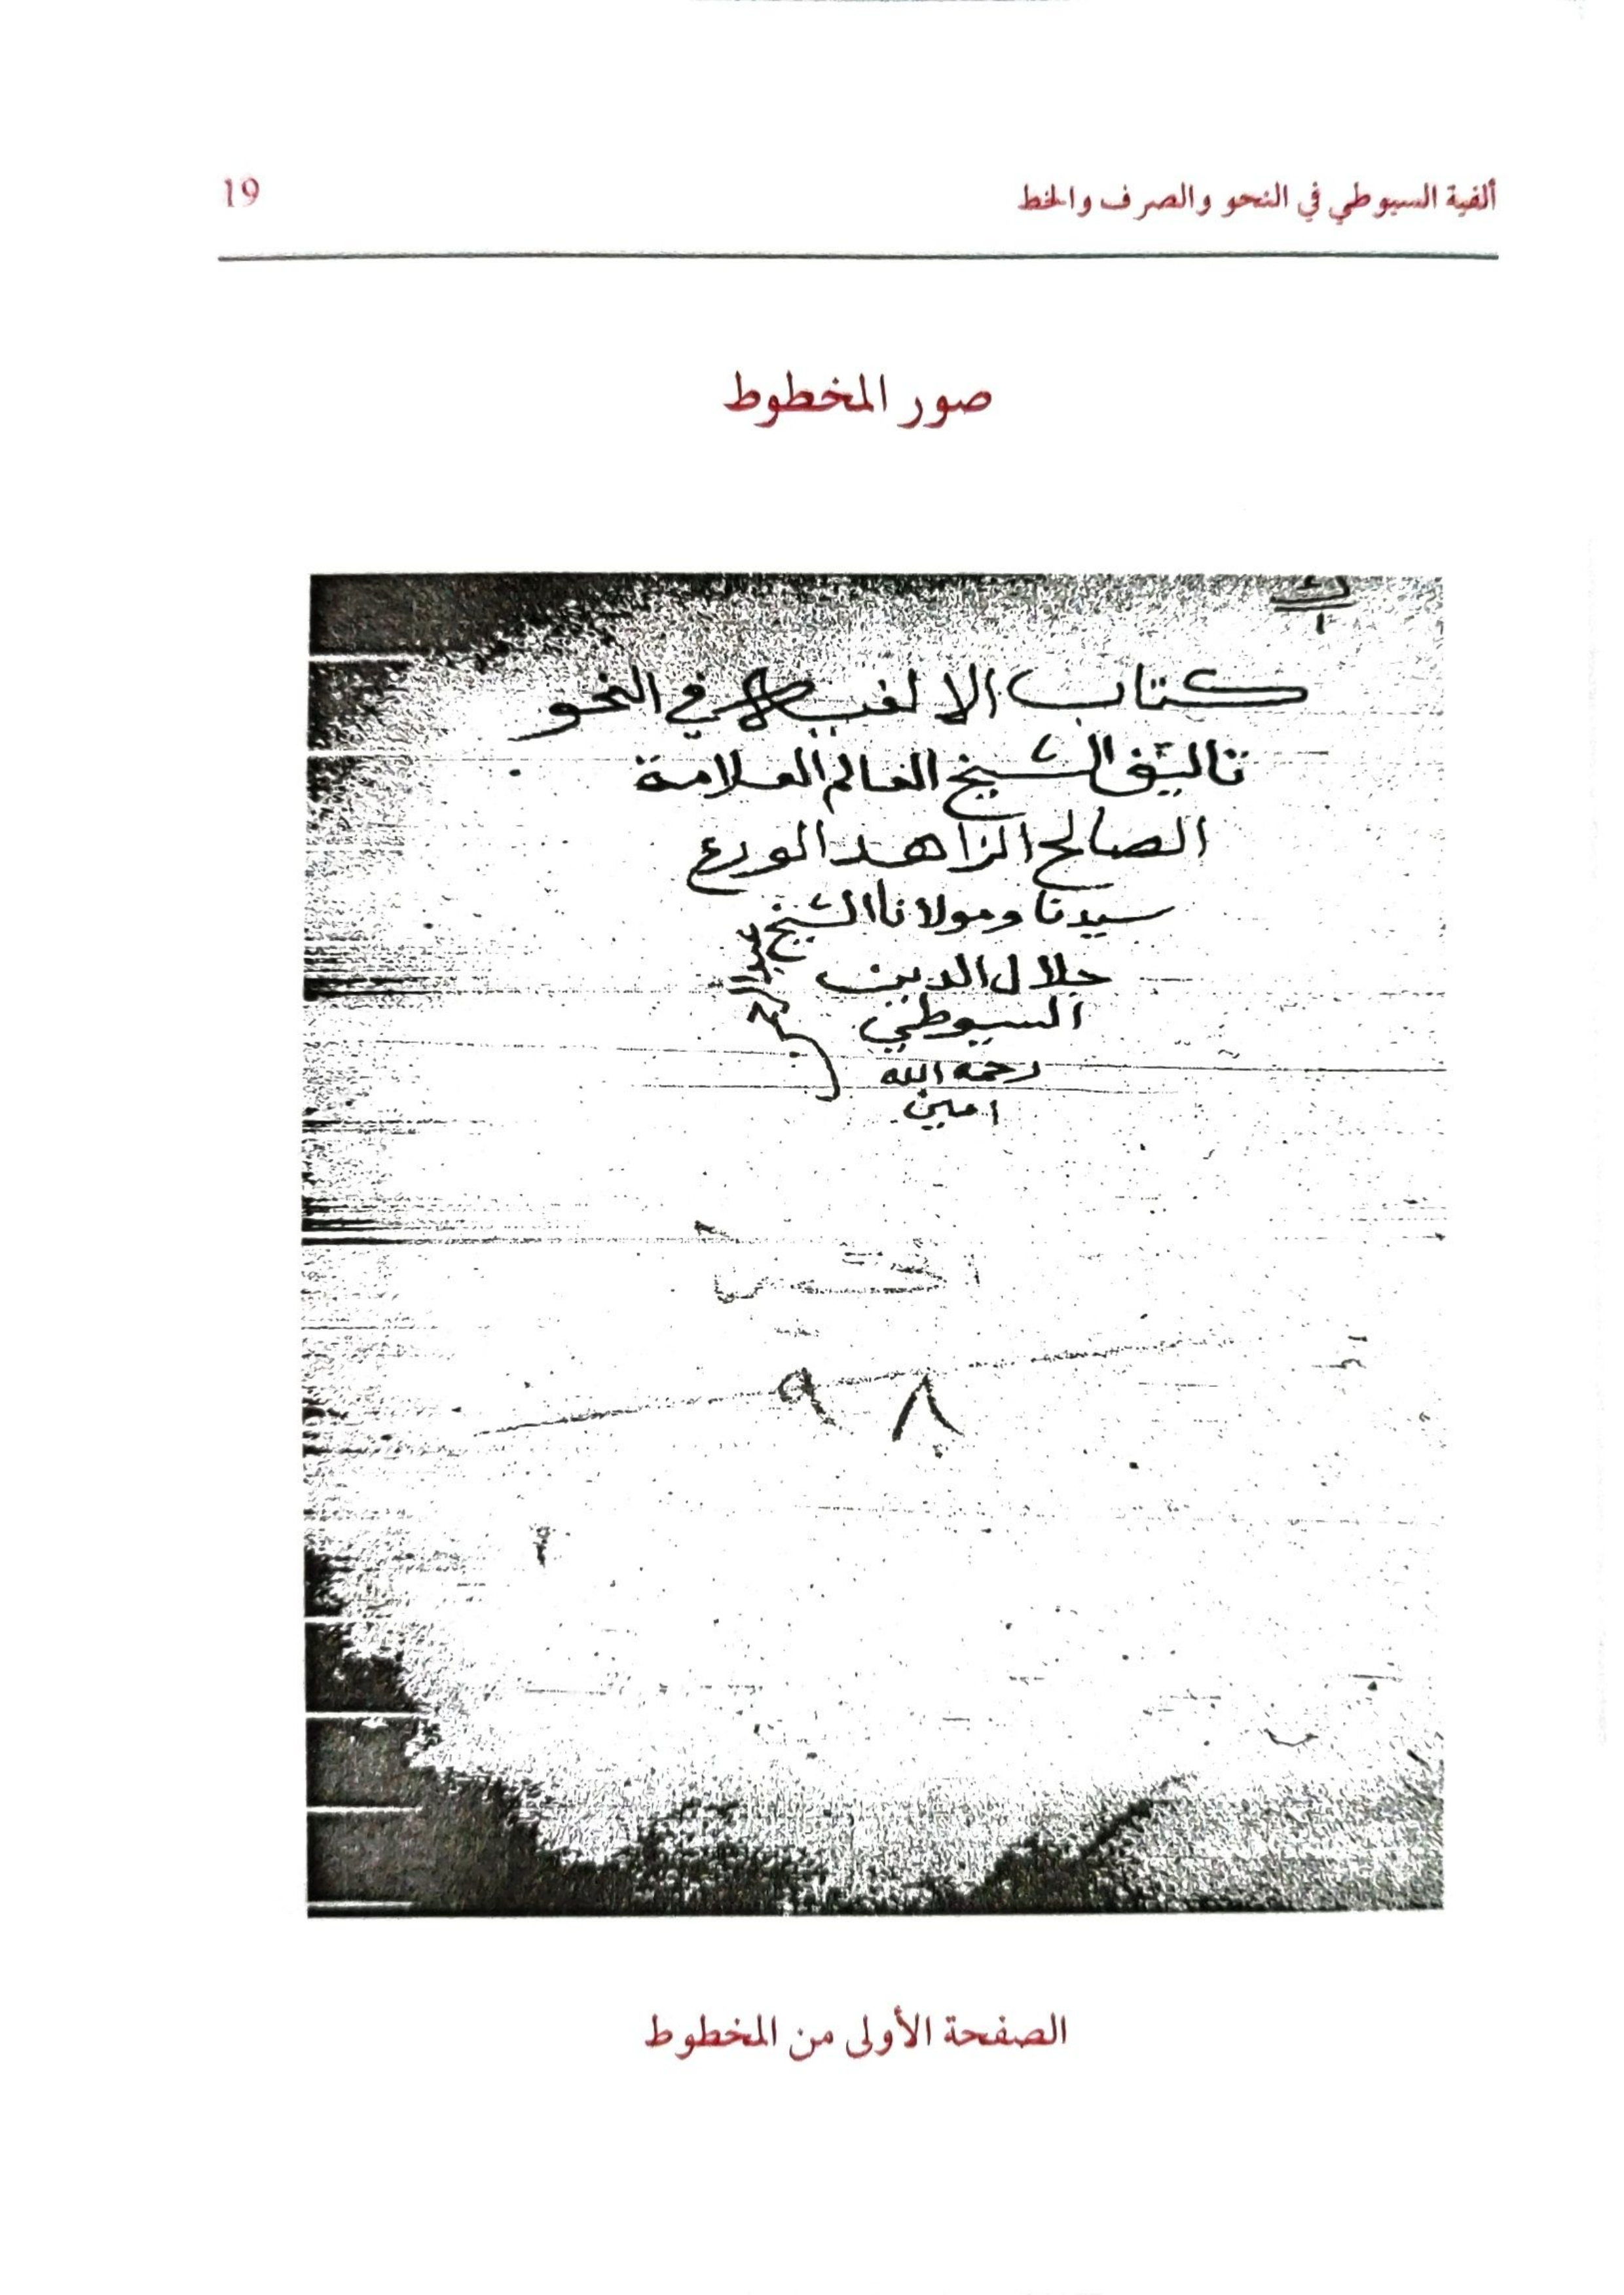 ألفية السيوطي في النحو والصرف والخط
19
صور المخطوط
كتاب الالفيه في النحو
تاليف الشيخ العالم العلامة
الصالح الزاهد الورع
سيدنا ومولانا الشيخ
جلال الدين
السيوطي
رحمه الله
امين
٩٨
الصفحة الأولى من المخطوط